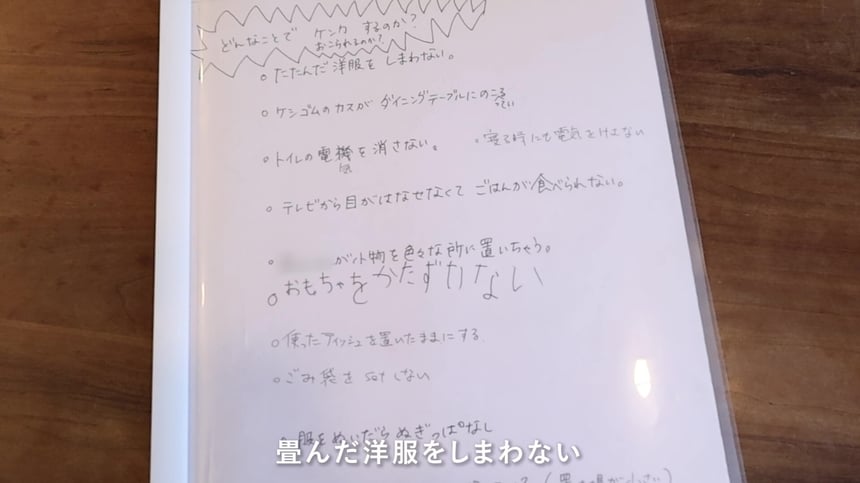 どんなことで ケンカ するのか?
おこられるのか?
○ たたんだ 洋服を しまわない。
○ ケシゴムのカスが ダイニングテーブルにのこる
ってい
○ トイレの電機を消さない。 ○ 寝る時にも電気をけさない
気
○ テレビから目がはなせなくて ごはんが食べられない。
○ が小物を色々な所に置いちゃう。
○ おもちゃをかたずけない
○ 使ったティッシュを置いたままにする
○ ごみ袋を setしない
服をぬいだらぬぎっぱなし
畳んだ洋服をしまわない